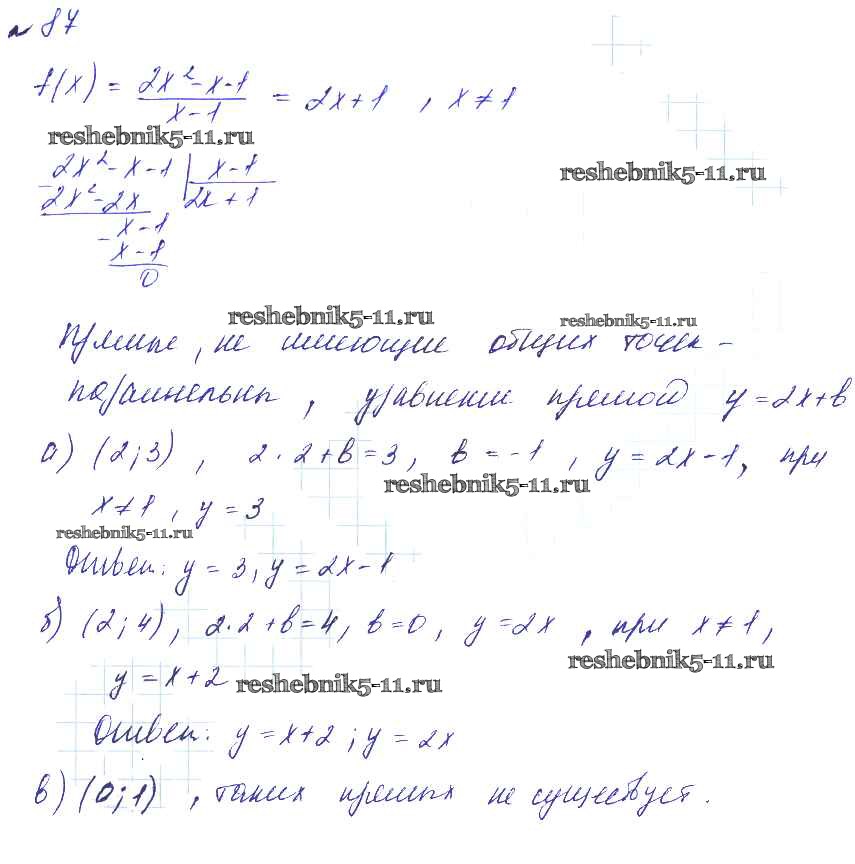 № 87
f(x) = 2x² - x - 1 / x - 1 = 2x + 1 , x ≠ 1
reshebnik5-11.ru
reshebnik5-11.ru
2x² - x - 1 | x - 1
2x² - 2x 2x + 1
x - 1
- x - 1
0
reshebnik5-11.ru
reshebnik5-11.ru
Прямые, не имеющие общих точек -
параллельны, уравнение прямой y = 2x + b
а) (2; 3) , 2 · 2 + b = 3, b = -1 , y = 2x - 1, при
reshebnik5-11.ru
x ≠ 1 , y = 3
reshebnik5-11.ru
Ответ: y = 3, y = 2x - 1
б) (2; 4), 2 · 2 + b = 4, b = 0, y = 2x , при x ≠ 1,
reshebnik5-11.ru
y = x + 2
reshebnik5-11.ru
Ответ: y = x + 2 ; y = 2x
в) (0; 1) , таких прямых не существует.